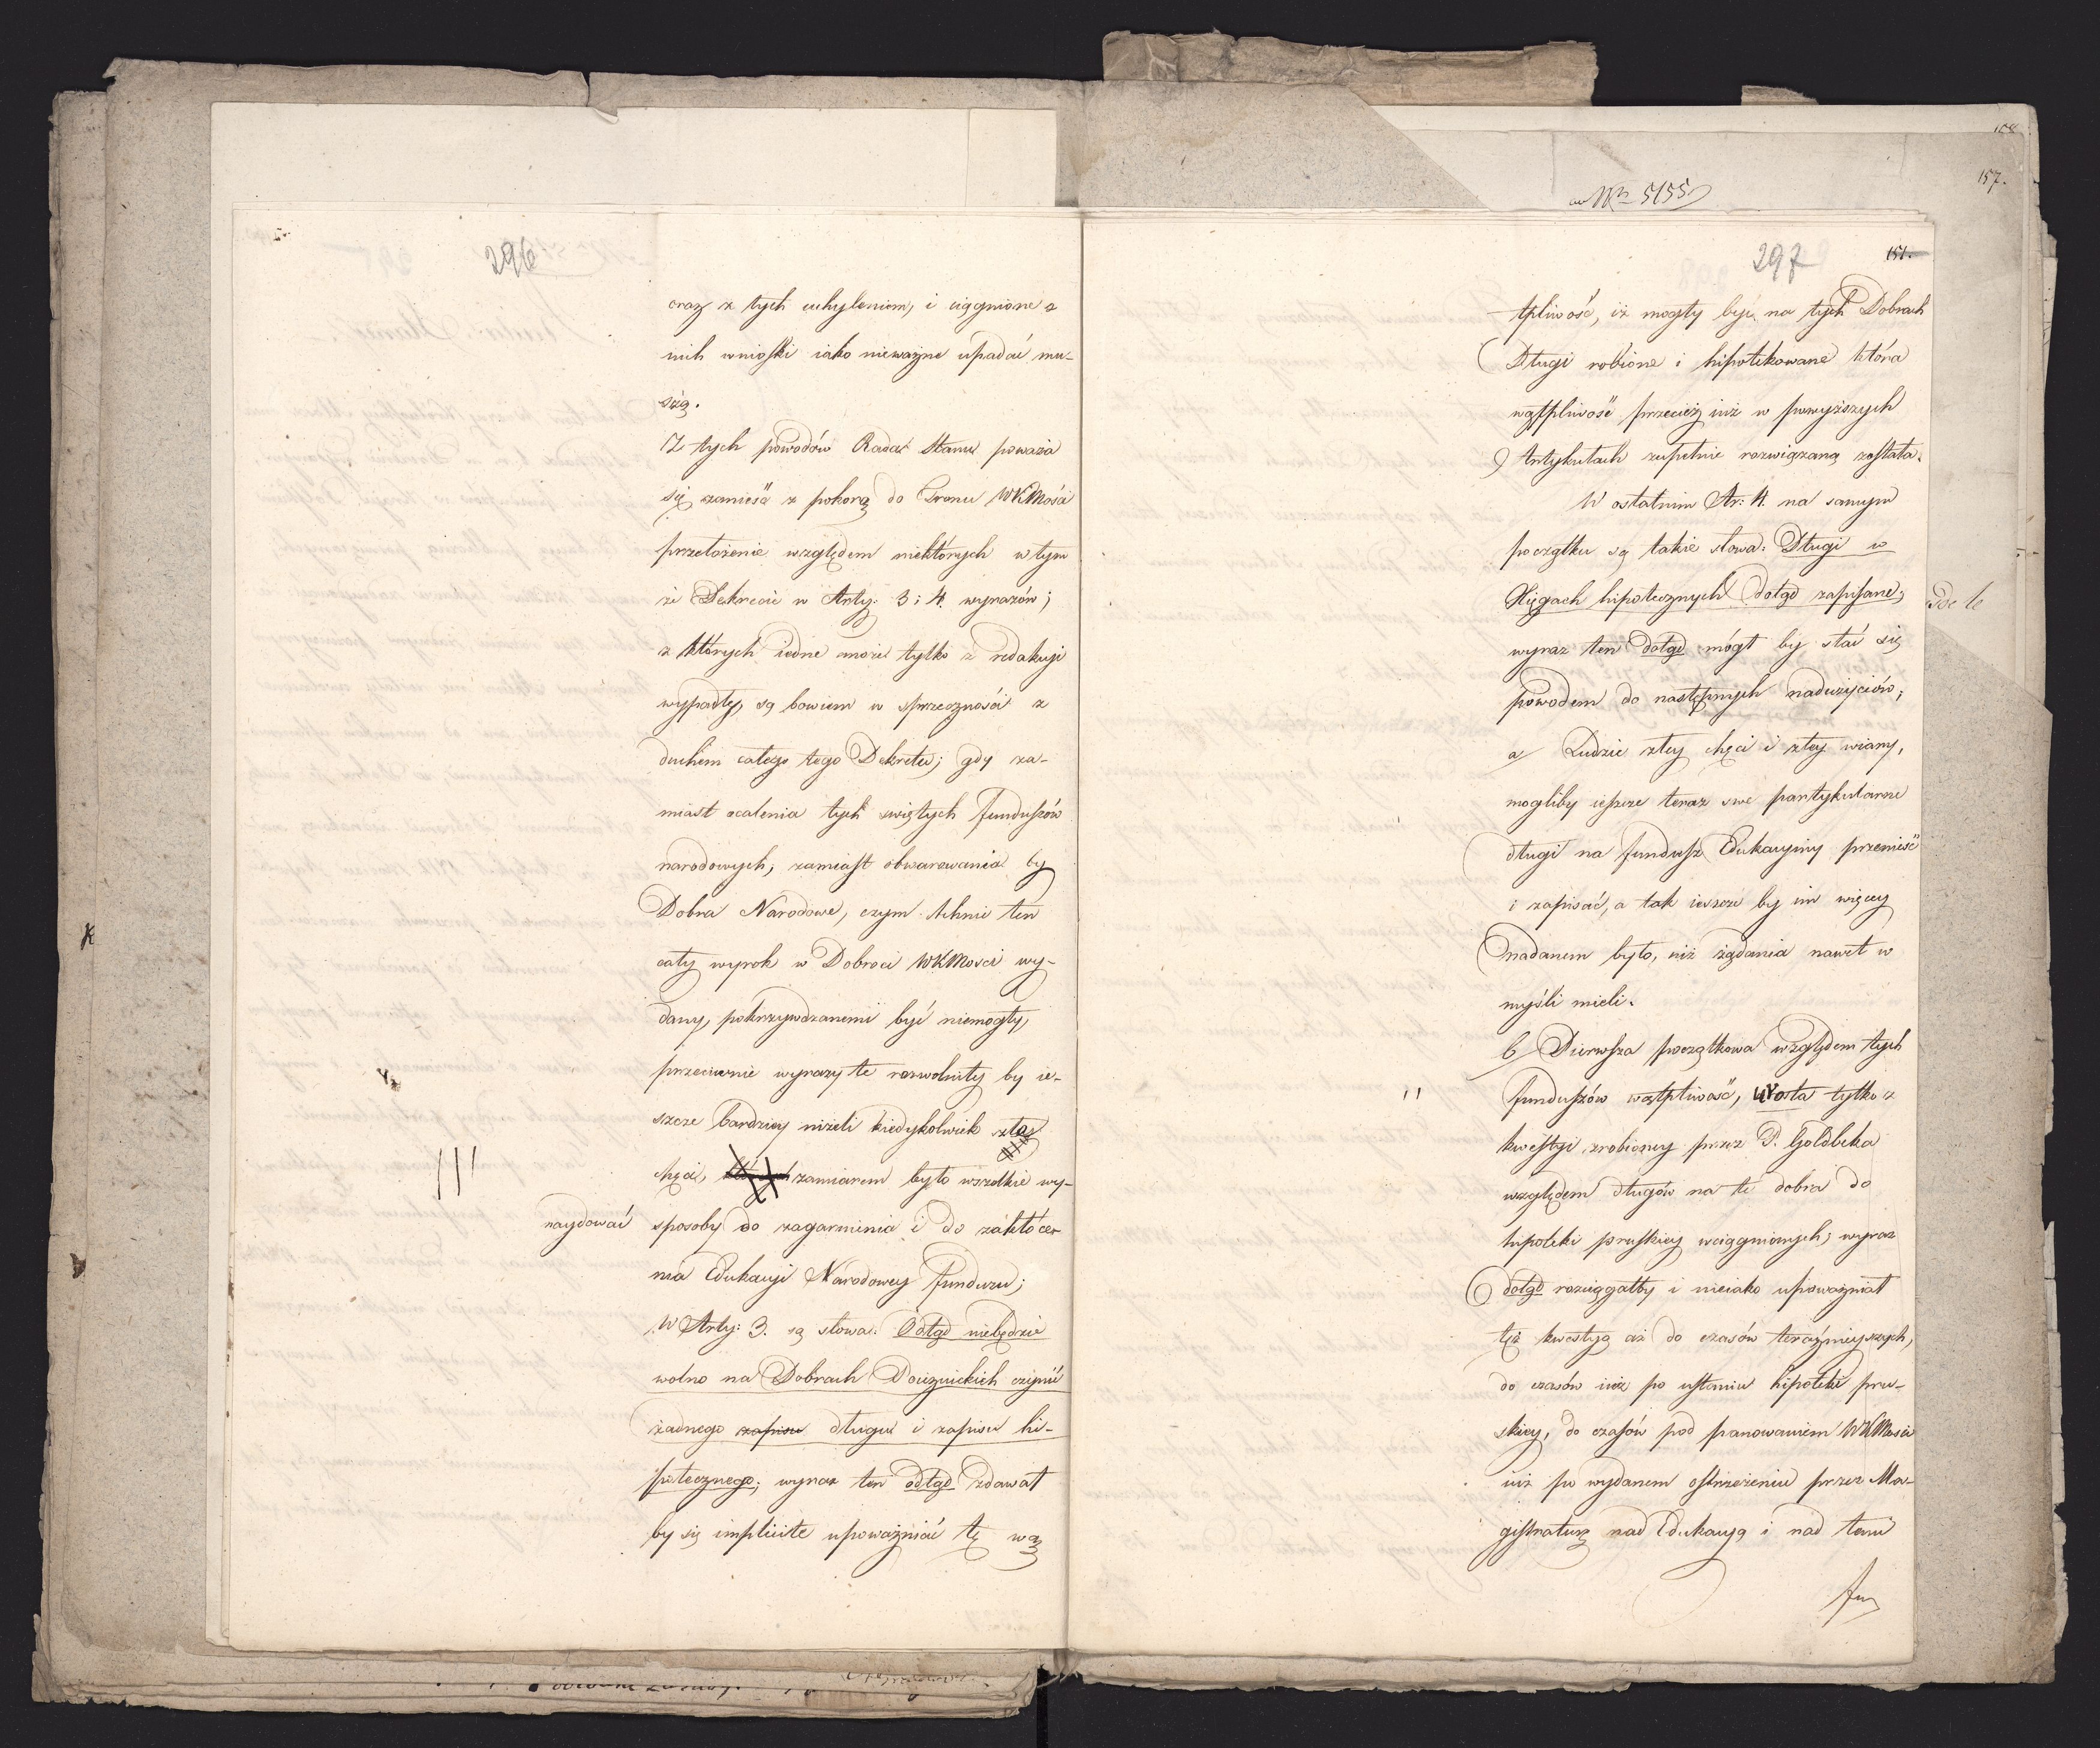 296
oraz z tych uchyleniem, i ciągnione z
nich wnioski iako nieważne upadać mu-
szą.
Z tych powodów Rada Stanu poważa
się zanieść z pokorą do Tronu WKMości
przełożenie względem niektórych w tym
że Dekrecie w Arty: 3 i 4. wyrazów;
z których iedne może tylko z redakcyi
wypadły, są bowiem w sprzeczności z
duchem całego tego Dekretu; gdy za-
miast ocalenia tych świętych funduszów
narodowych, zamiast obwarowania by
Dobra Narodowe, czym tchnie ten
cały wyrok w Dobroci WKMości wy-
dany, pokrzywdzanemi być niemogły,
przeciwnie wyrazy te rozwolniły by ie-
szcze bardziey niżeli kiedykolwiek złey
chęci, zamiarem było wszelkie wy-
naydować sposoby do zagarnienia i do zakłóce-
nia Edukacyi Narodowey funduzu;
W Arty: 3. są słowa: Odtąd niebędzie
wolno na Dobrach Poiezuickich czynić
żadnego zapisu długu i zapisu hi-
potecznego; wyraz ten odtąd zdawał
by się implicite upoważniać tę wą
108
157.
ad Nro 5155
297
151.
tpliwość, iż mogły być na tych Dobrach
Długi robione i hipotekowane która
wątpliwość przecież iuż w powyższych
Artykułach zupełnie rozwiązaną została.
W ostatnim Ar: 4. na samym
początku są takie słowa: Długi w
Xięgach hipotecznych dotąd zapisane;
wyraz ten dotąd mógł by stać się
powodem do następnych nadużyciów;
a/ Ludzie złey chęci i złey wiary,
mogliby ieszcze teraz swe partykularne
długi na fundusz Edukacyiny przenieść
i zapisać, a tak ieszcze by im więcey
nadanem było, niż żądania nawet w
myśli mieli.
b/ Pierwsza początkowa względem tych
funduszów wątpliwość, urosła tylko z
kwestyi zrobioney przez P. Goldbeka
względem długów na te dobra do
hipoteki pruskiey wciągnionych; wyraz
dotąd roziągałby i nieiako upoważniał
tęż kwestyą aż do czasów teraźnieyszych,
do czasów iuż po ustaniu hipoteki pru-
skiey, do czasów pod panowaniem WKMości
iuż po wydanem ostrzeżeniu przez Ma-
gistraturę nad Edukacyą i nad temi
fun